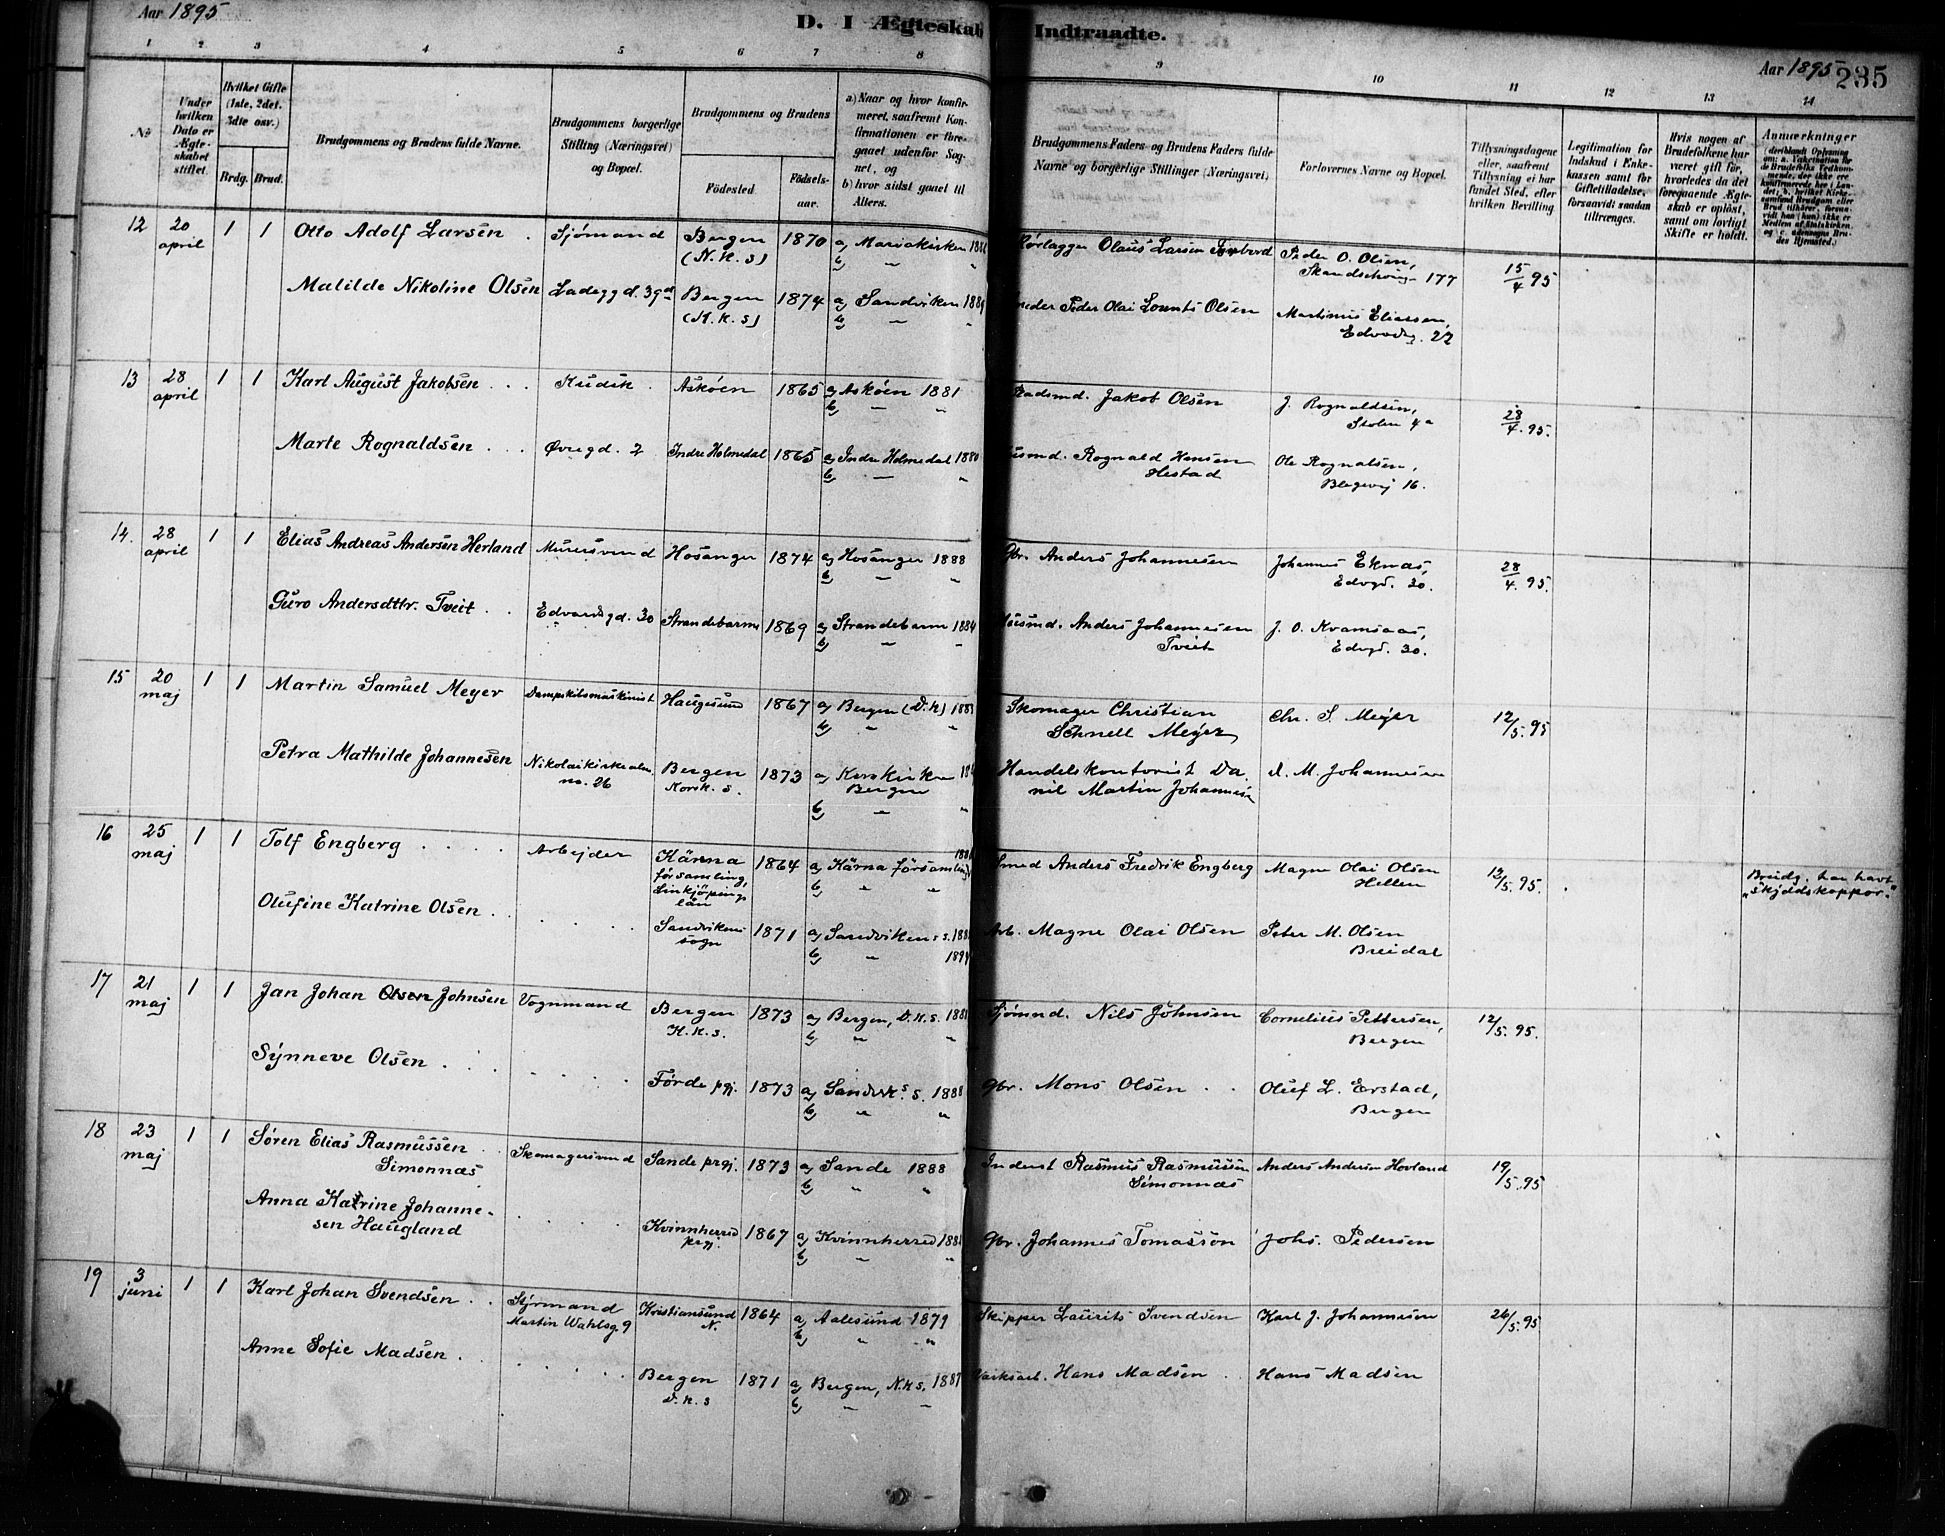 Aar 1895
D. I Ægteskab Indtraadte.
Aar 1895
235
1 2 3 4 5 6 7 8 9 10 11 12 13 14
No
Under hvilken Dato er Ægteskabet stiftet.
Hvilket Gifte (1ste, 2det, 3die osv.)
Brdg. Brud.
Brudgommens og Brudens fulde Navne.
Brudgommens borgerlige Stilling (Næringsvei) og Bopæl.
Brudgommens og Brudens
Födested Födsels-aar.
a) Naar og hvor konfirmeret, saafremt Konfirmationen er foregaaet udenfor Sognet, og
b) hvor sidst gaaet til Alters.
Brudgommens Faders og Brudens Faders fulde Navne og borgerlige Stillinger (Næringsvei)
Forlovernes Navne og Bopæl.
Tillysningsdagene eller, saafremt Tillysning ei har fundet Sted, efter hvilken Bevilling
Legitimation for Indskud i Enkekassen samt for Giftetilladelse, forsaavidt saadan tiltrænges.
Hvis nogen af Brudefolkene har været gift før, hvorledes da det foregaaende Ægteskab er opløst, samt om lovligt Skifte er holdt.
Anmærkninger
12 20 april 1 1 Otto Adolf Larsen Sjömand Bergen (N. K. s) 1870 a, Mariakirken Olaus Larsen Peder O. Olsen, 177 15/4 95
Matilde Nikoline Olsen Ladegd. 39 Bergen (K. K. s) 1874 a, Sandviken 1889 Peder Olai Olsen Martinus Eliassen, 22
13 28 april 1 1 Karl August Jakobsen Kudsk Asköen 1865 a, Asköen 1881 Jakob Olsen J. Rognaldsen, Stølen 4a 28/4. 95.
Marte Rognaldsen Øvregd. 2 Indre Holmedal 1865 a, Indre Holmedal 1880 Rognald Hansen Hestad Ole Rognalsen, 16.
14. 28 april 1 1 Elias Andreas Andersen Herland Murersvend Hosanger 1874 a, Hosanger 1888 Gbr. Anders Johannesen Johannes Eknæs, Edvgd. 30. 28/4. 95.
Guro Andersdttr. Tveit Edvardsgd. 30 Strandebarm 1869 a, Strandebarm 1884 Husmd. Anders Johannesen Tveit J. O. Kvamsaas, Edvgd. 30.
15 20 maj 1 1 Martin Samuel Meyer Dampskibsmaskinist Haugesund 1867 a, Bergen (D. K) Skomager Christian Schnell Meyer Chr. S. Meyer 12/5. 95
Petra Mathilde Johannesen Nikolaikirkealm. no. 26 Bergen Korsk. s. 1873 a, Korskirken Bergen Handelskontorist Daniel Martin Johannesen d. M. Johannesen
16 25 maj 1 1 Tolf Engberg Arbejder Kärna församling, Linkjöpings län 1864 a, Kärna församling Smed Anders Fredrik Engberg Magne Olai Olsen Hellen 12/5. 95. Brudg. har havt "skyddskoppor."
Olufine Katrine Olsen Sandvikens sogn 1871 a, Sandvikens s. Arb. Magne Olai Olsen Peter M. Olsen Breidal
17 21 maj 1 1 Jan Johan Olsen Johnsen Vognmand Bergen K. K. s. 1873 a, Bergen, D. K. s. 1888 Sjömd. Nils Johnsen Cornelius Pettersen, Bergen 12/5. 95.
Synneve Olsen Førde pgj. 1873 a, Sandvk. s. 1888 Gbr. Mons Olsen Oluf L. Erstad, Bergen
18 23 maj 1 1 Søren Elias Rasmussen Simonnæs Skomagersvend Sande prgj. 1873 a, Sande 1888 Inderst Rasmus Rasmussen Simonnæs Anders Andersen Hovland 19/5. 95
Anna Katrine Johannesen Haugland Kvinnherred prgj. 1867 a, Kvinnherred Gbr. Johannes Tomasson Johs. Pedersen
19 3 juni 1 1 Karl Johan Svendsen Styrmand Martin Wahlsg. 9 Kristiansund N. 1864 a, Aalesund 1879 Skipper Laurits Svendsen Karl J. Johannesen 26/5. 95
Anne Sofie Madsen Bergen D. K. s 1871 a, Bergen, N. K. s. 1887 Hans Madsen Hans Madsen